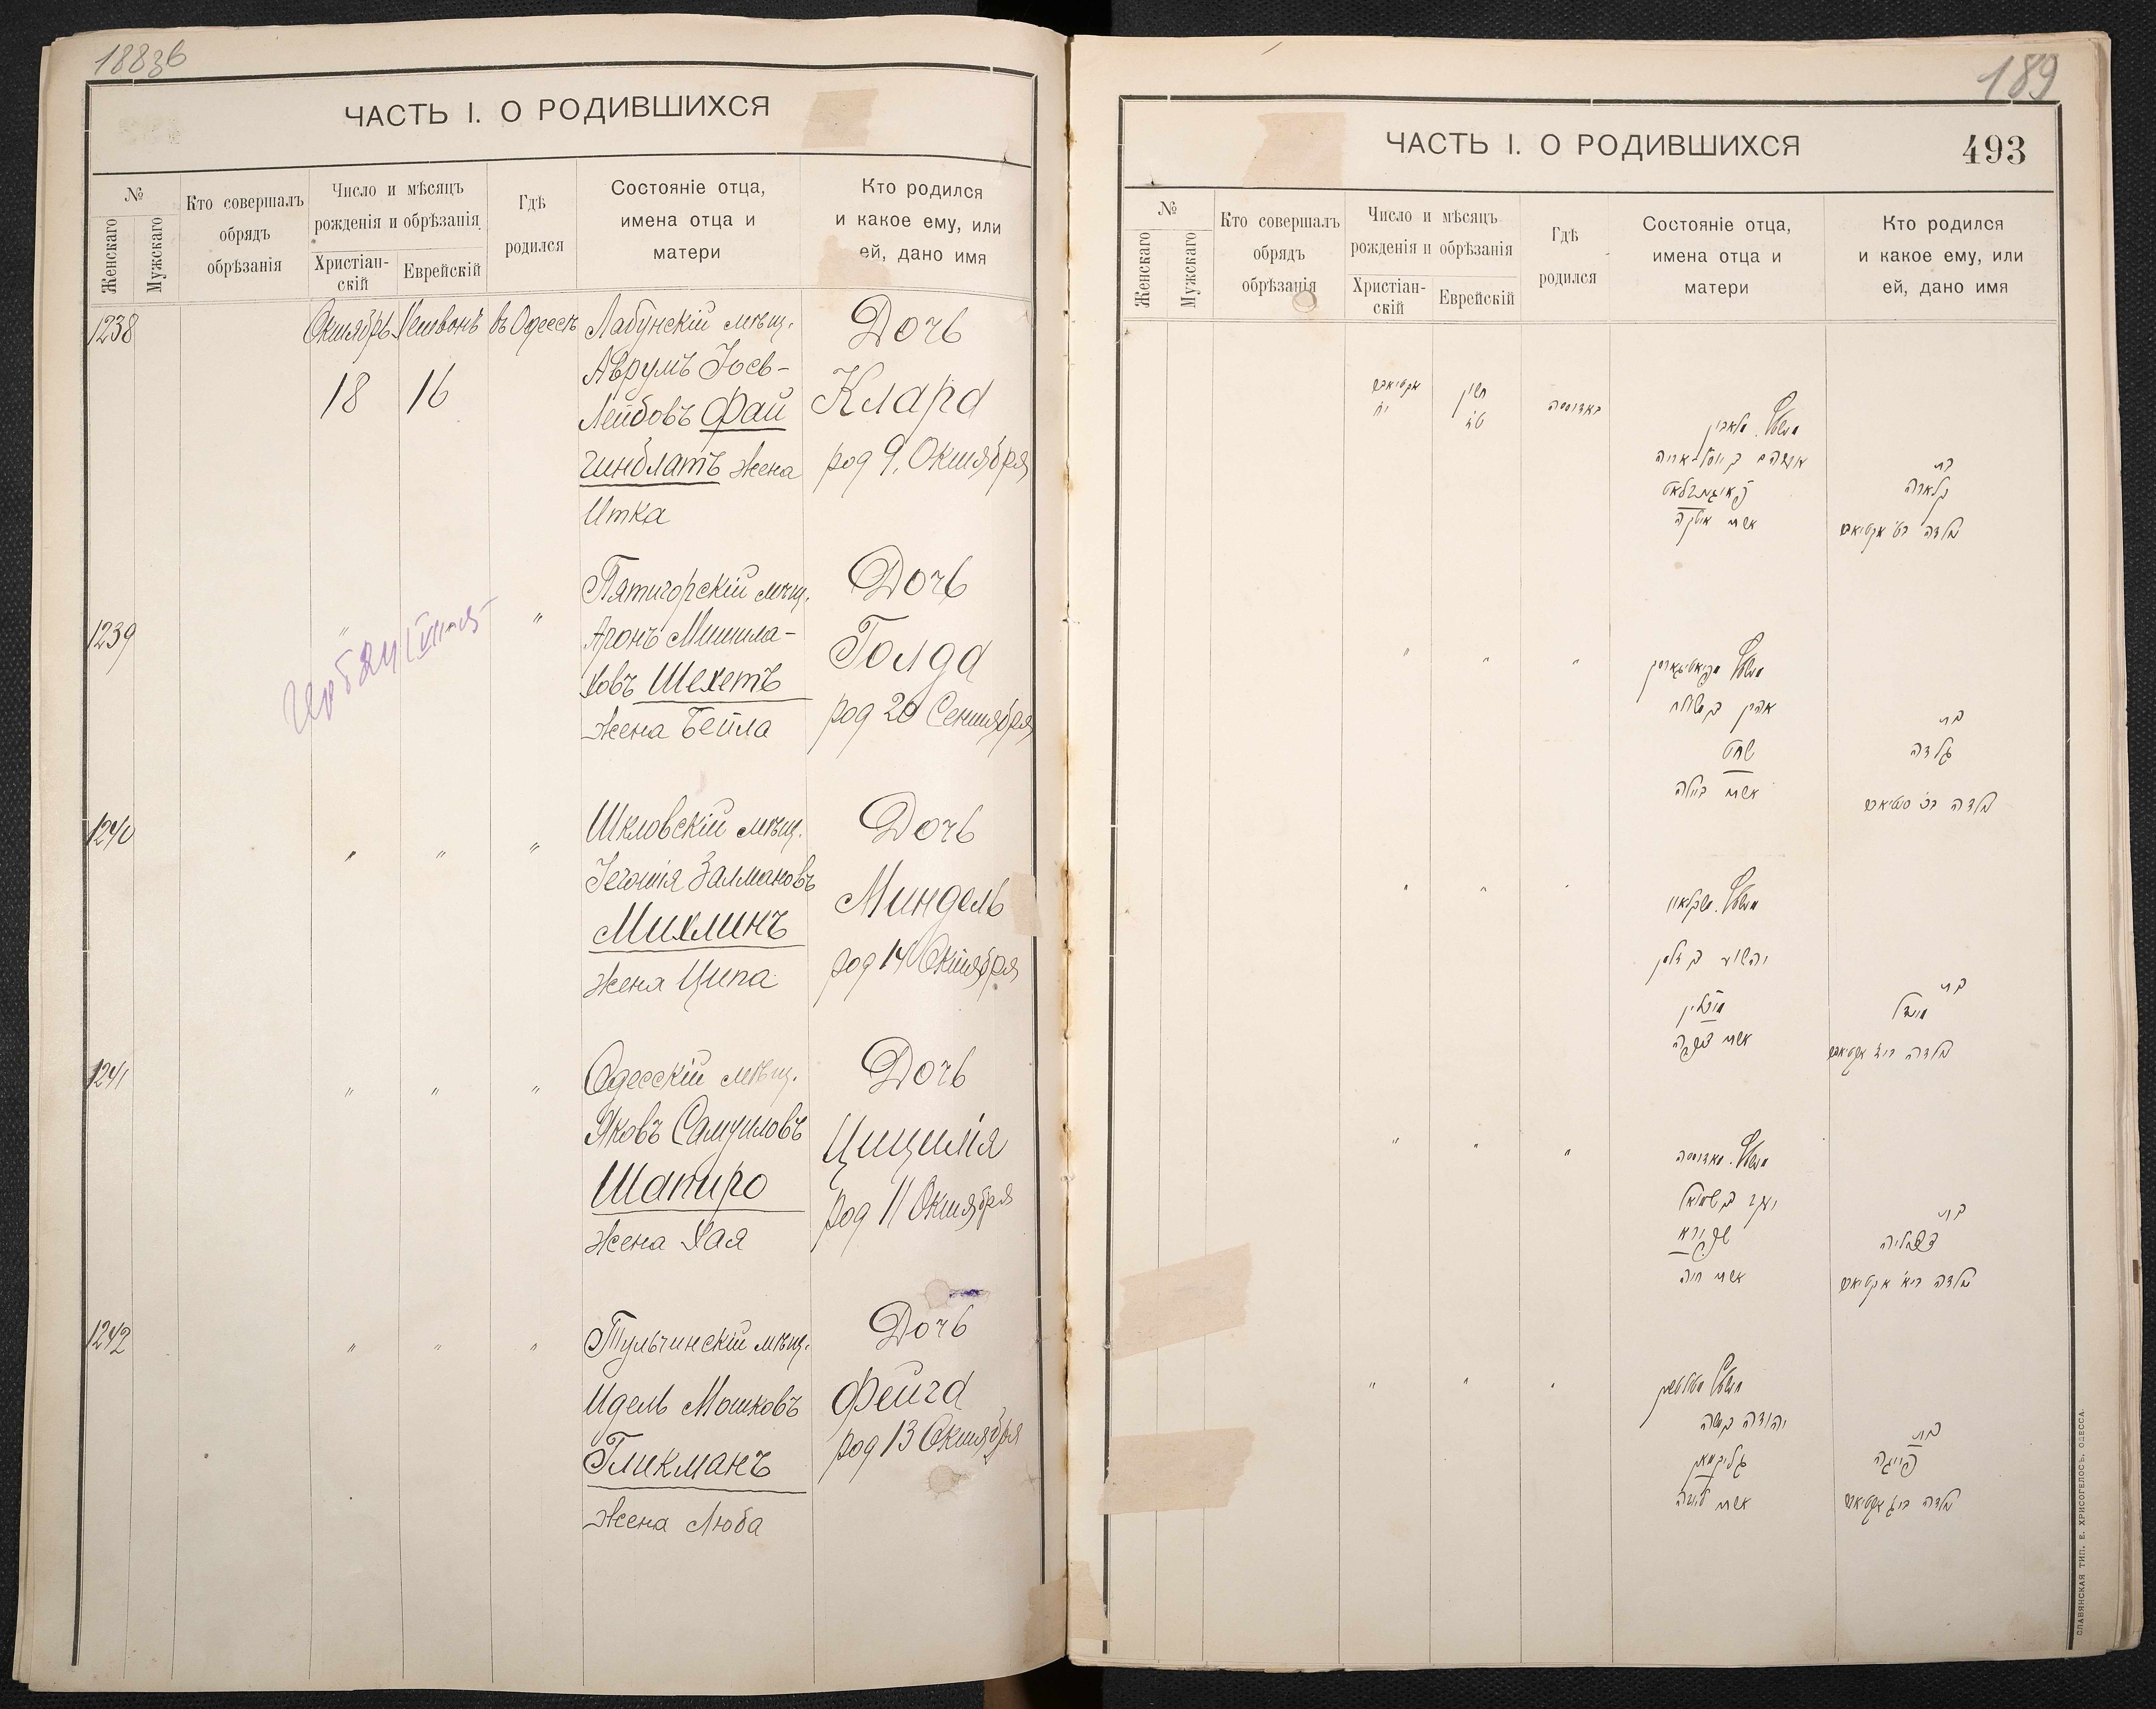 188об
ЧАСТЬ I. О РОДИВШИХСЯ
№
Женскаго
Мужскаго
Кто совершалъ
обрядъ
обрѣзанія
Число и мѣсяцъ
рожденія и обрѣзанія
Христіан-
скій
Еврейскій
Гдѣ
родился
Состояніе отца,
имена отца и
матери
Кто родился
и какое ему, или
ей, дано имя
1238
Октябрь
18
Хешвонъ
16
въ Одессѣ
Лабунскій мѣщ.
Аврумъ Іось-
Лейбовъ Фай
чинблатъ жена
Итка
Дочь
Клара
род 9. Октября
1239
"
"
Пятигорскій мѣщ.
Аронъ Мишила-
ховъ Шехетъ
жена Бейла
Дочь
Голда
род 20 Сентября
1240
"
"
"
Шкловскій мѣщ.
Іегошія Залмановъ
Михлинъ
жена Ципа
Дочь
Миндель
род 14 Октября
1241
"
"
"
Одесскій мѣщ.
Яковъ Самуиловъ
Шапиро
жена Хая
Дочь
Цицилія
род 11 Октября
1242
"
"
"
Тульчинскій мѣщ.
Идель Мошковъ
Гликманъ
жена Люба
Дочь
Фейга
род 13 Октября
189
ЧАСТЬ I. О РОДИВШИХСЯ
493
№
Женскаго
Мужскаго
Кто совершалъ
обрядъ
обрѣзанія
Число и мѣсяцъ
рожденія и обрѣзанія
Христіан-
скій
Еврейскій
Гдѣ
родился
Состояніе отца,
имена отца и
матери
Кто родился
и какое ему, или
ей, дано имя
חשון
באדוססה
אשתו איטקה
בת
קלארה
"
"
"
שחט
אשתו ביילה
בת
גלדה
"
"
"
יהושע ב זלמן
מיכלין
אשתו צפה
בת
מינדל
"
"
"
יעקב ב שמואל
שפירא
אשתו חיה
בת
"
"
"
יהודה ב משה
גליקמאן
אשתו ליובה
בת
פייגה
СЛАВЯНСКАЯ ТИП. Е. ХРИСОГЕЛОСЪ, ОДЕССА.